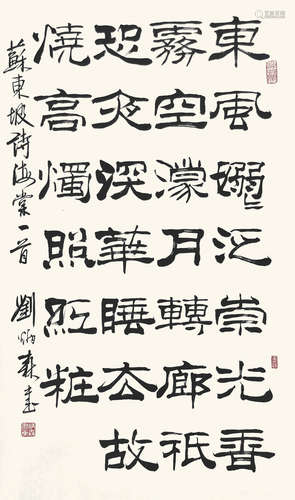 東風嫋〻泛崇光香
霧空濛月轉廊祇
恐夜深華睡去故
燒高燭照紅粧
蘇東坡詩海棠一首 劉炳森書